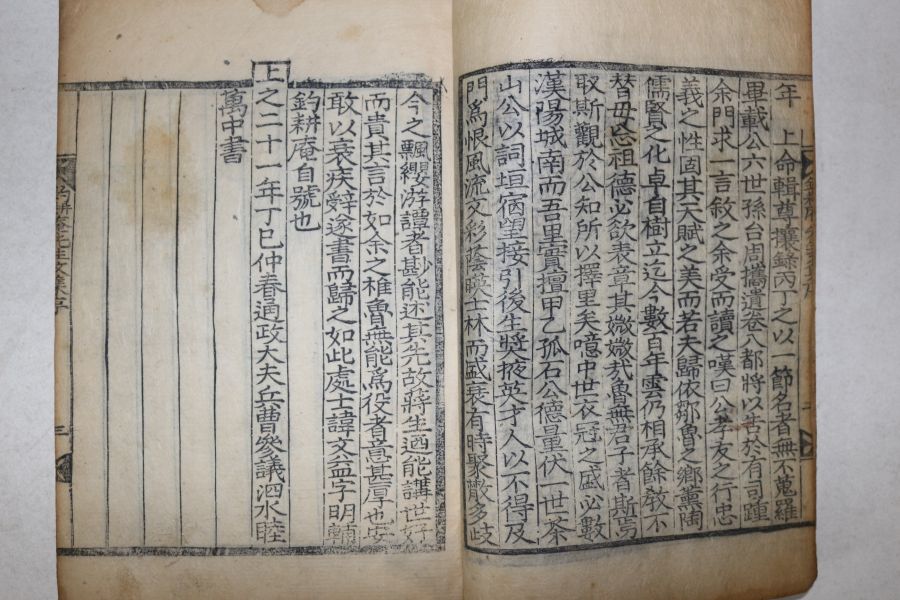 年　上命輯尊攘錄丙丁之以一節名者無不蒐羅
畢載公六世孫台周攜遺卷八都將以告於有司踵
余門求一言敘之余受而讀之嘆曰公孝友之行忠
義之性固其天賦之美而若夫歸依鄒魯之鄉薰陶
儒賢之化卓自樹立迄今數百年雲仍相承餘教不
替毋忘祖德必欲表章其媺媺哉魯無君子者斯焉
取斯觀於公知所以擇里矣噫中世衣冠之盛必數
漢陽城南而吾里實擅甲乙孤石公德量伏一世茶
山公以詞垣宿望接引後生奬掖英才人以不得及
門爲恨風流文彩蔭暎士林而盛衰有時聚散多歧
今之飄纓游譚者尠能述其先故蔣生迺能講世好
而貴其言於如余之椎魯無能爲役者意甚厚也安
敢以衰疾辭遂書而歸之如此處士諱文益字明輔
釣耕庵自號也
上之二十一年丁巳仲春通政大夫兵曹參議泗水睦
萬中書
釣耕庵先生文集序
三